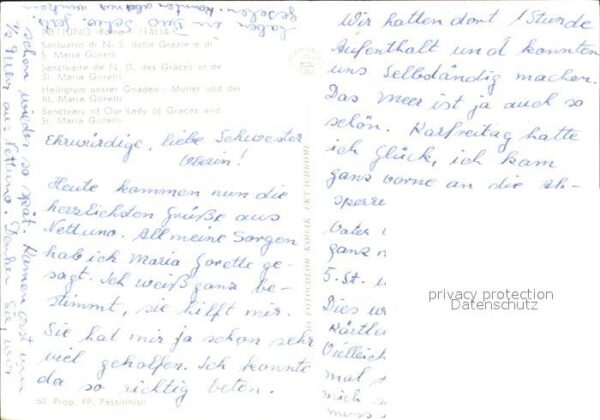 NETTUNO
Santuario di N. S. delle Grazie e di
S. Maria Goretti
Sanctuaire de N. D. des Grâces et de
S. Maria Goretti
Heiligtum unsrer Gnaden - Mutter und der
hl. Maria Goretti
Sanctuary of Our Lady of Graces and
St. Maria Goretti
Ehrwürdige, liebe Schwester
Oberin!
Heute kommen nun die
herzlichsten Grüße aus
Nettuno. All meine Sorgen
hab ich Maria Gorette ge-
sagt. Ich weiß ganz be-
stimmt, sie hilft mir.
Sie hat mir ja schon sehr
viel geholfen. Ich konnte
da so richtig beten.
Prop. PP. Passionisti
FOTOCOLOR KODAK EKTACHROME
Wir hatten dort 1 Stunde
Aufenthalt und konnten
uns Selbständig machen.
Das Meer ist ja auch so
schön. Karfreitag hatte
ich Glück, ich kam
ganz vorne an die Ab-
sperre
Vater
ganz
5. St.
Dies
Vielleich
mal
mich
schon wieder so spät. Kamen erst um
Uhr aus Nettuno. Denken Sie, wir
haben
gesehen
privacy protection
Datenschutz